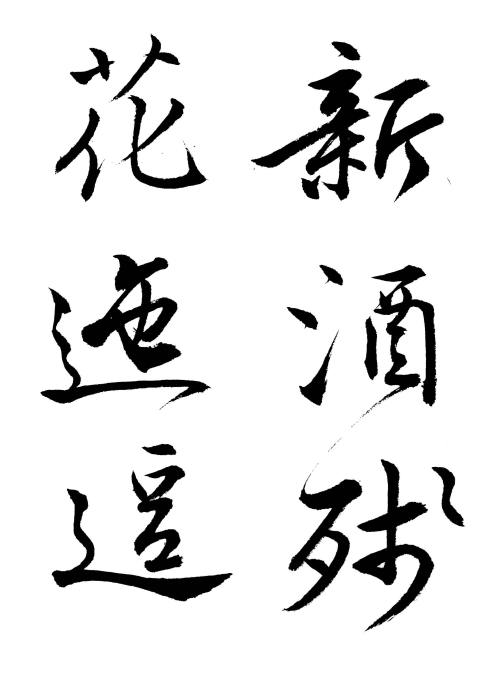 新酒残
花迤逗